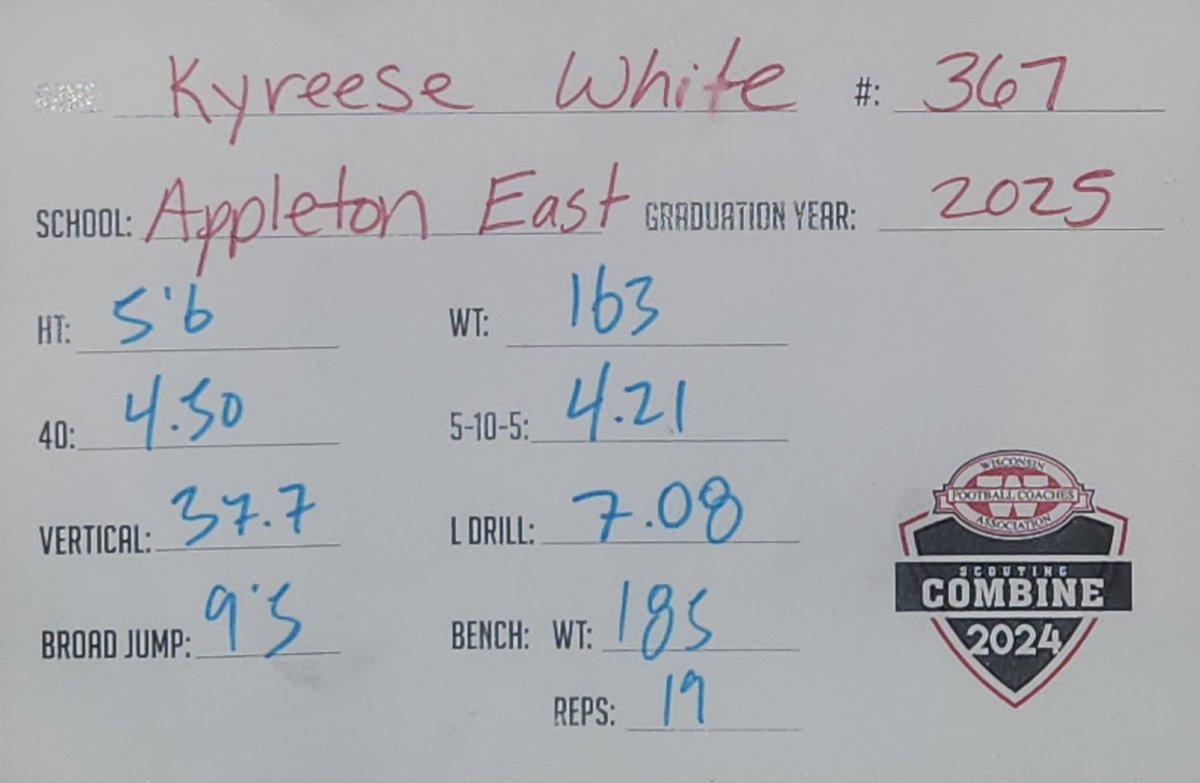 Kyreese White #: 367
SCHOOL: Appleton East GRADUATION YEAR: 2025
HT: 5'6 WT: 163
40: 4.50 5-10-5: 4.21
VERTICAL: 37.7 L DRILL: 7.08
BROAD JUMP: 9'5 BENCH: WT: 185
REPS: 19
WISCONSIN
FOOTBALL COACHES
ASSOCIATION
SCOUTING
COMBINE
2024